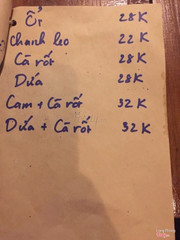 Ổi 28K
Chanh leo 22K
Cà rốt 28K
Dứa 28K
Cam + Cà rốt 32K
Dứa + Cà rốt 32K